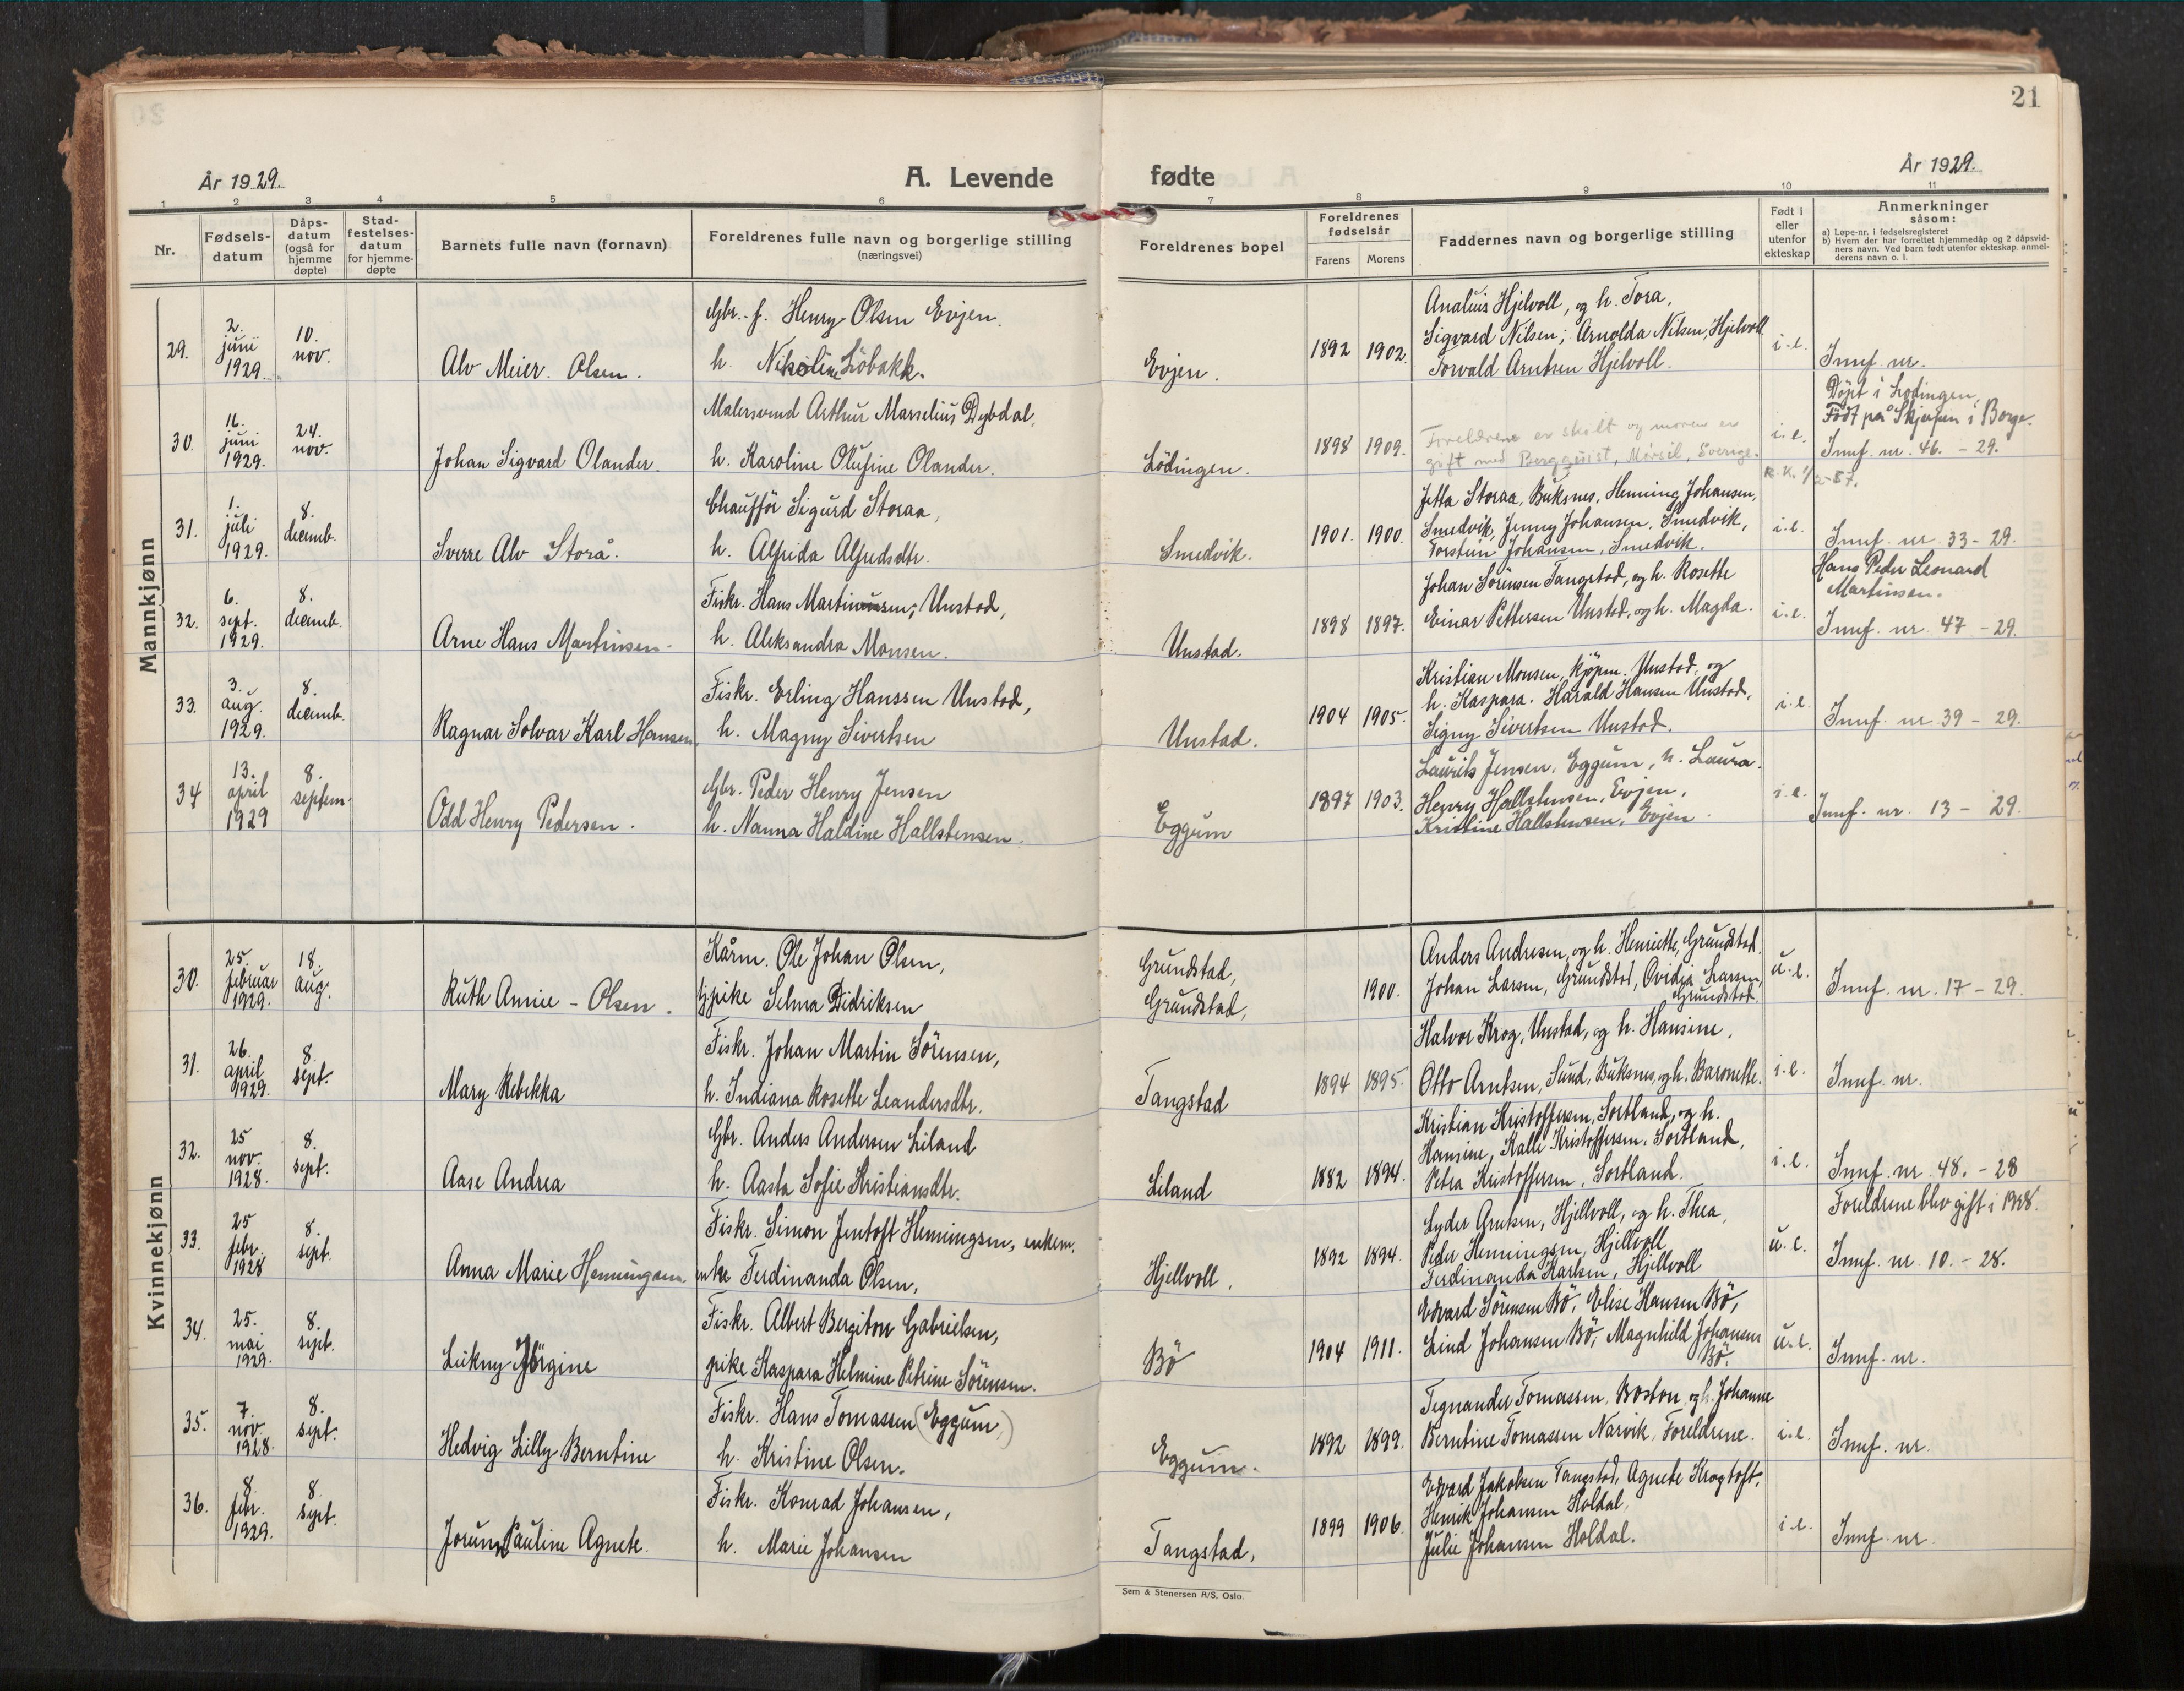 21
År 1929.
A. Levende fødte
År 1929.
1 2 3 4 5 6 7 8 9 10 11
Nr.
Fødsels-
datum
Dåps-
datum
(også for
hjemme
døpte)
Stad-
festelses-
datum
for hjemme-
døpte
Barnets fulle navn (fornavn)
Foreldrenes fulle navn og borgerlige stilling
(næringsvei)
Foreldrenes bopel
Foreldrenes
fødselsår
Farens Morens
Faddernes navn og borgerlige stilling
Født i
eller
utenfor
ekteskap
Anmerkninger
såsom:
a) Løpe-nr. i fødselsregisteret
b) Hvem der har forrettet hjemmedåp og 2 dåpsvid-
ners navn. Ved barn født utenfor ekteskap anmel-
derens navn o. l.
Mannkjønn
29.
2.
juni
1929.
10.
nov.
Alv Meier. Olsen.
Gbr.-f. Henry Olsen Evjen.
h. Nikoline Löbakk.
Evjen.
1892 1902.
Analius Hjelvoll, og h. Tora,
Sigvard Nilsen; Arnolda Nilsen, Hjelvoll
Torvald Arntsen Hjelvoll.
i.e.
Innf. nr.
30.
16.
juni
1929.
24.
nov.
Johan Sigvard Olander.
Malersvend Arthur Marselius Dybdal,
h. Karoline Olufine Olander.
Lödingen.
1898 1909.
Foreldrene er skilt og moren er
gift med Bergquist, Mörsil, Sverige.
i.e.
Döpt i Lödingen,
Född på Skjerpen i Borge.
Innf. nr. 46. - 29.
R.K. 1/2-57.
31.
1.
juli
1929.
8.
decemb.
Sverre Alv Storå.
Chaufför Sigurd Storaa,
h. Alfrida Alfredsdtr.
Smedvik.
1901. 1900.
Jetta Storaa, Buksnes, Henning Johansen,
Smedvik, Jenny Johansen, Smedvik,
Torstein Johansen, Smedvik.
i.e.
Innf. nr. 33-29.
32.
6.
sept.
1929.
8.
decemb.
Arne Hans Martinsen.
Fiskr. Hans Martinussen, Unstad,
h. Aleksandra Monsen.
Unstad.
1898 1897.
Johan Sörensen Tangstad, og h. Rosette
Einar Pettersen Unstad, og h. Magda.
i.e.
Hans Peder Leonard
Martinsen.
Innf. nr. 47 - 29.
33.
3.
aug.
1929.
8.
decemb.
Ragnar Solvar Karl Hansen.
Fiskr. Erling Hanssen Unstad,
h. Magny Sivertsen
Unstad.
1904 1905.
Kristian Monsen, kjöpm. Unstad, og
h. Kaspara. Harald Hansen Unstad,
Signy Sivertsen Unstad.
i.e.
Innf. nr. 39 - 29.
34
13.
april
1929
8.
septem.
Odd Henry Pedersen.
Gbr. Peder Henry Jensen
h. Nanna Haldine Hallstensen.
Eggum
1897 1903.
Laurits Jensen, Eggum, h. Laura.
Henry Hallstensen, Evjen,
Kristine Hallstensen, Evjen.
i.e.
Innf. nr. 13 - 29.
Kvinnekjønn
30.
25.
februar
1929.
18.
aug.
Ruth Annie - Olsen.
Kårm. Ole Johan Olsen,
pike Selma Didriksen
Grundstad,
Grundstad,
1900.
Anders Andresen, og h. Henriette, Grundstad.
Johan Larsen, Grundstad, Ovidia Larsen,
Grundstad.
u.e.
Innf. nr. 17 - 29.
31.
26.
april
1929.
8.
sept.
Mary Rebekka
Fiskr. Johan Martin Sörensen,
h. Indiana Rosette Leandersdtr.
Tangstad
1894 1895.
Halvor Krog, Unstad, og h. Hansine,
Otto Arntsen, Sund, Buksnes, og h. Baronette.
i.e.
Innf. nr.
32.
25
nov.
1928.
8.
sept.
Aase Andrea
Gbr. Anders Andersen Liland
h. Aasta Sofie Kristiansdtr.
Liland
1882 1894.
Kristian Kristoffersen, Sortland, og h.
Hansine, Kalle Kristoffersen, Sortland,
Petra Kristoffersen, Sortland.
i.e.
Innf. nr. 48. - 28
33.
25
febr.
1928
8.
sept.
Anna Marie Henningsen.
Fiskr. Simon Jentoft Henningsen, enkem.
enke Ferdinanda Olsen,
Hjellvoll.
1892 1894.
Lyder Arntsen, Hjellvoll, og h. Thea,
Peder Henningsen, Hjellvoll
Ferdinanda Karlsen, Hjellvoll
u.e.
Foreldrene blev gift i 1928.
Innf. nr. 10. - 28.
34.
25.
mai
1929.
8.
sept.
Lukny Jörgine
Fiskr. Albert Bergiton Gabrielsen,
pike Kaspara Helmine Petrine Sörensen.
Bö
1904 1911.
Edvard Sörensen Bö, Elise Hansen Bö,
Lind Johansen Bö, Magnhild Johansen
Bö.
u.e.
Innf. nr.
35.
7.
nov.
1928.
8.
sept.
Hedvig Lilly Berntine
Fiskr. Hans Tomassen (Eggum,)
h. Kristine Olsen.
Eggum.
1892 1899.
Tegnander Tomassen, Boston, og h. Johanne
Berntine Tomassen Narvik, Foreldrene.
i.e.
Innf. nr.
36.
8.
febr.
1929.
8.
sept.
Jorunn Pauline Agnete.
Fiskr. Konrad Johansen,
h. Marie Johansen
Tangstad,
1899 1906.
Edvard Jakobsen Tangstad, Agnete Krogtoft,
Henrik Johansen Holdal,
Julie Johansen Holdal.
i.e.
Innf. nr.
Sem & Stenersen A/S, Oslo.